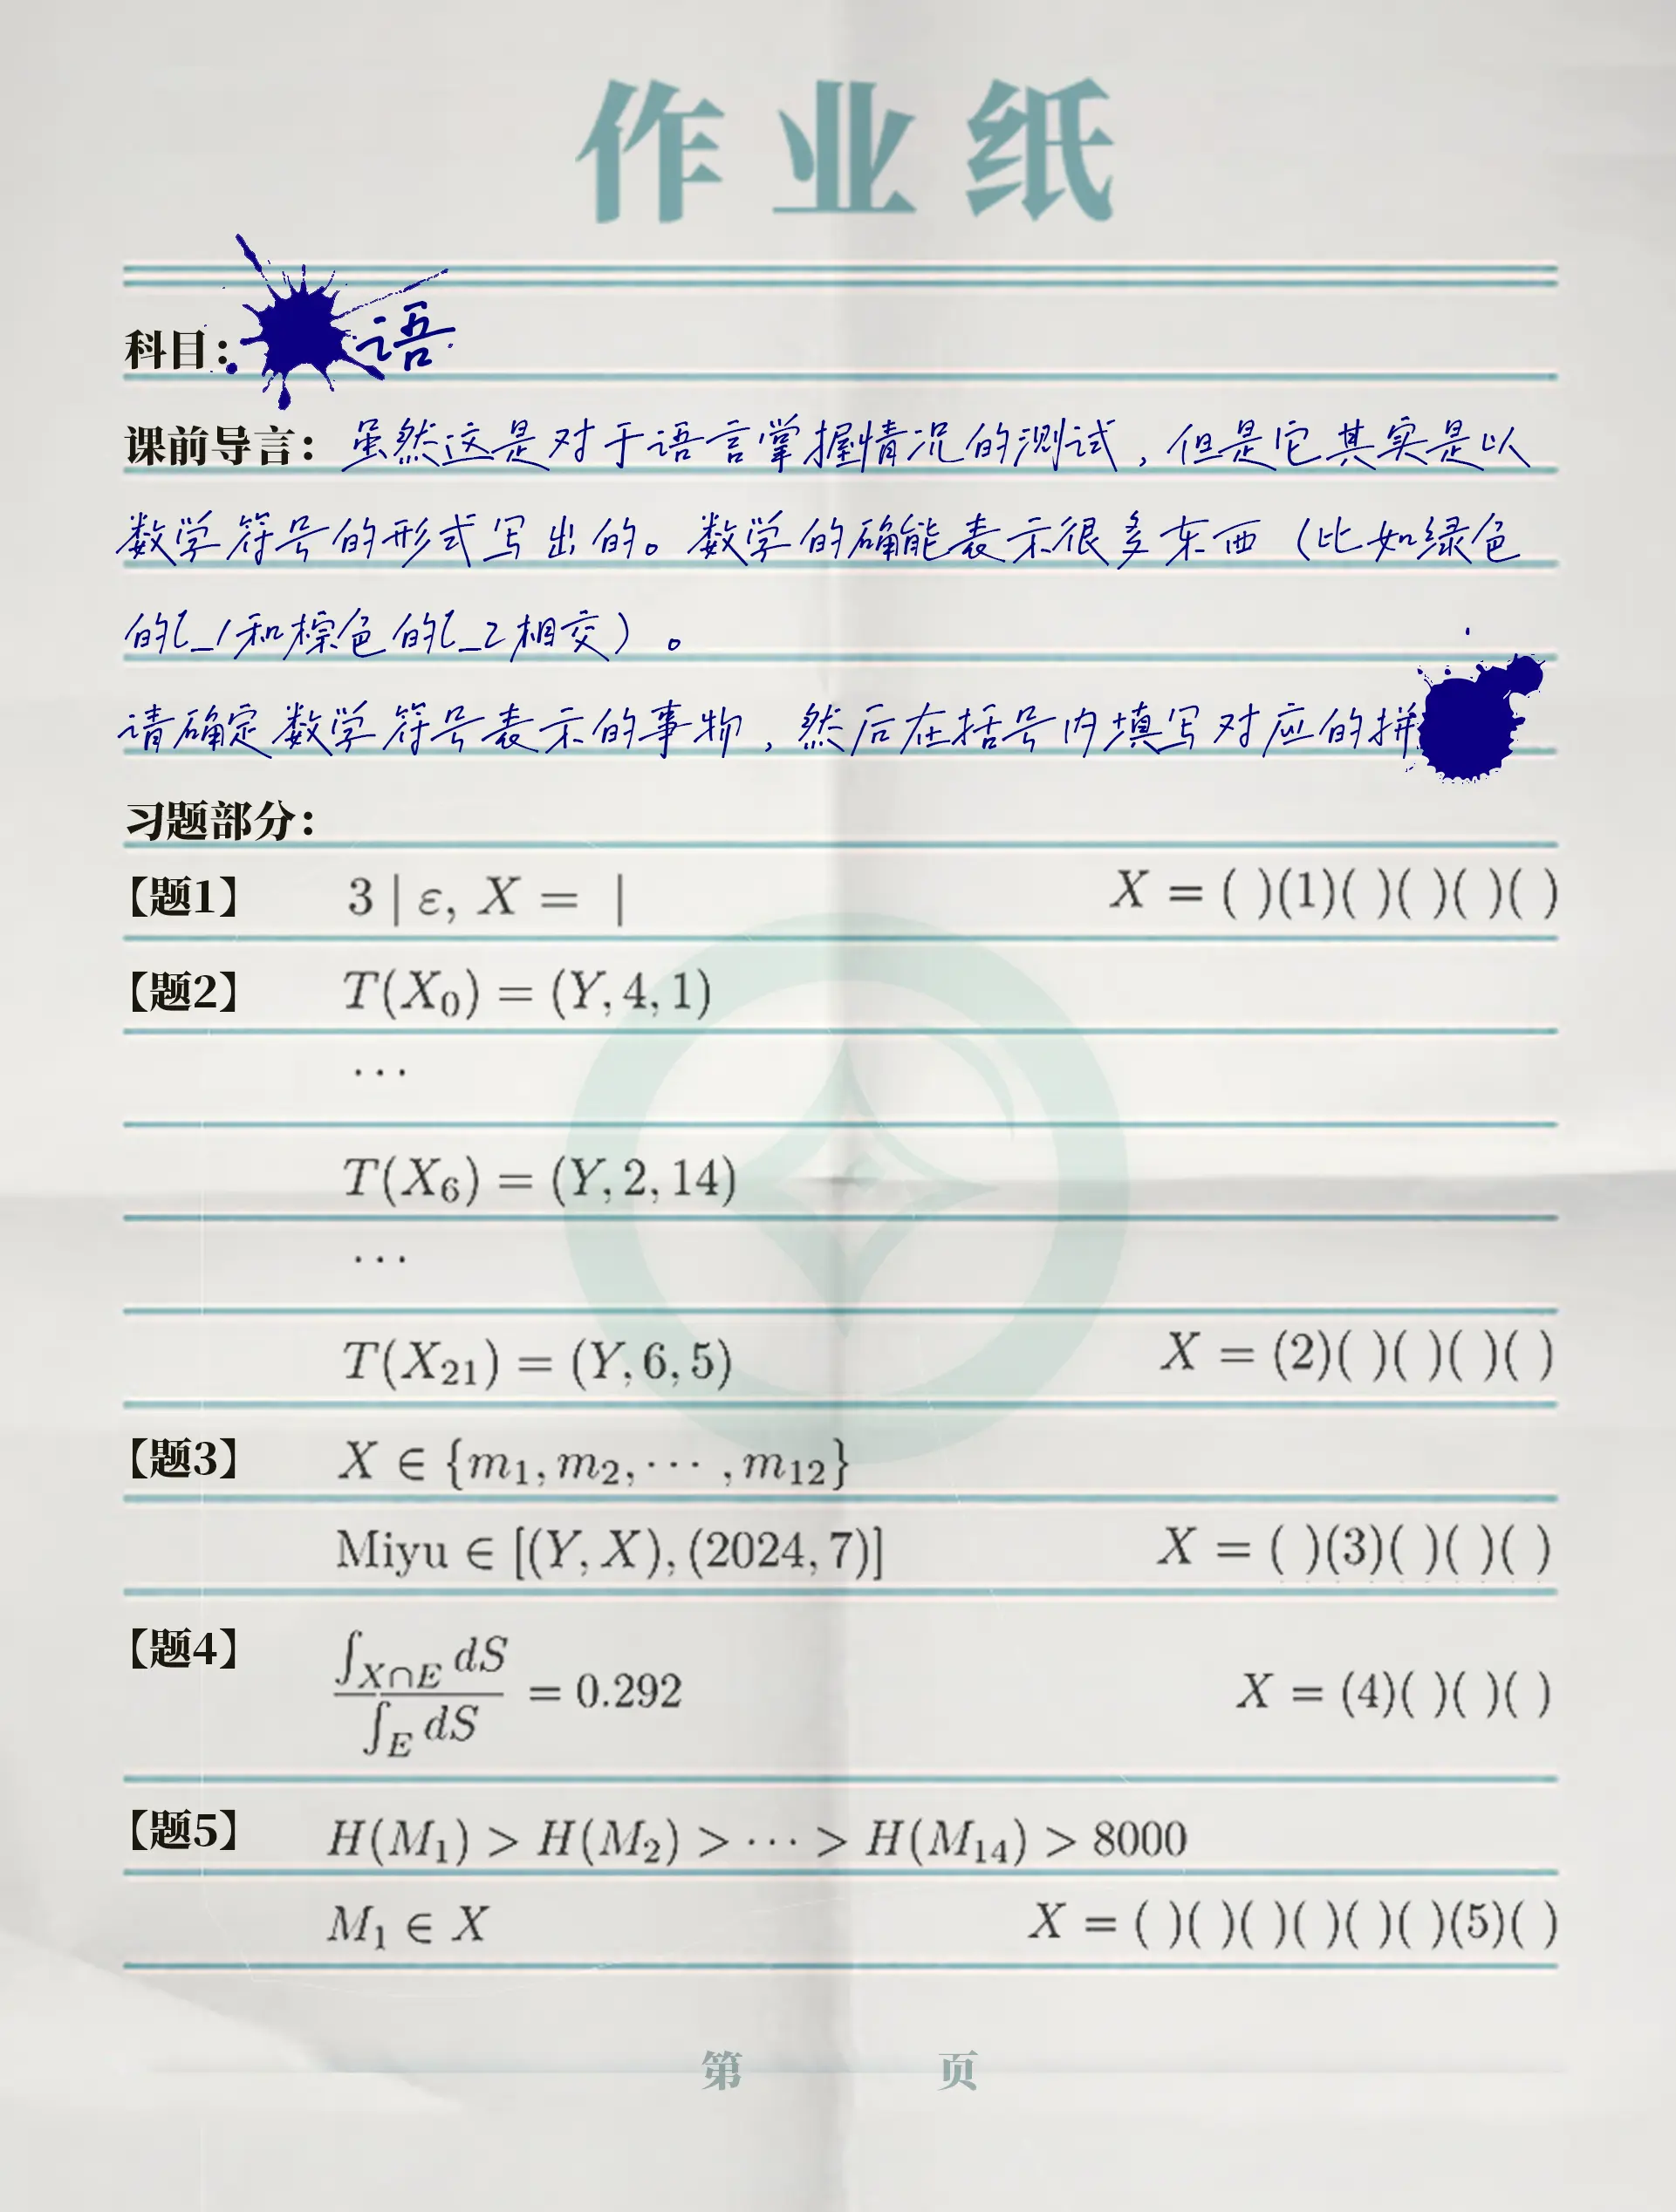 作业纸
科目： 语
课前导言：虽然这是对于语言掌握情况的测试，但是它其实是以
数学符号的形式写出的。数学的确能表示很多东西（比如绿色
的l_1和棕色的l_2相交）。
请确定数学符号表示的事物，然后在括号内填写对应的拼
习题部分：
【题1】 3 | ε, X = | X = ( )(1)( )( )( )( )
【题2】 T(X₀) = (Y, 4, 1)
···
T(X₆) = (Y, 2, 14)
···
T(X₂₁) = (Y, 6, 5) X = (2)( )( )( )( )
【题3】 X ∈ {m₁, m₂, ··· , m₁₂}
Miyu ∈ [(Y, X), (2024, 7)] X = ( )(3)( )( )( )
【题4】 ∫_{X∩E} dS / ∫_E dS = 0.292 X = (4)( )( )( )
【题5】 H(M₁) > H(M₂) > ··· > H(M₁₄) > 8000
M₁ ∈ X X = ( )( )( )( )( )( )(5)( )
第 页